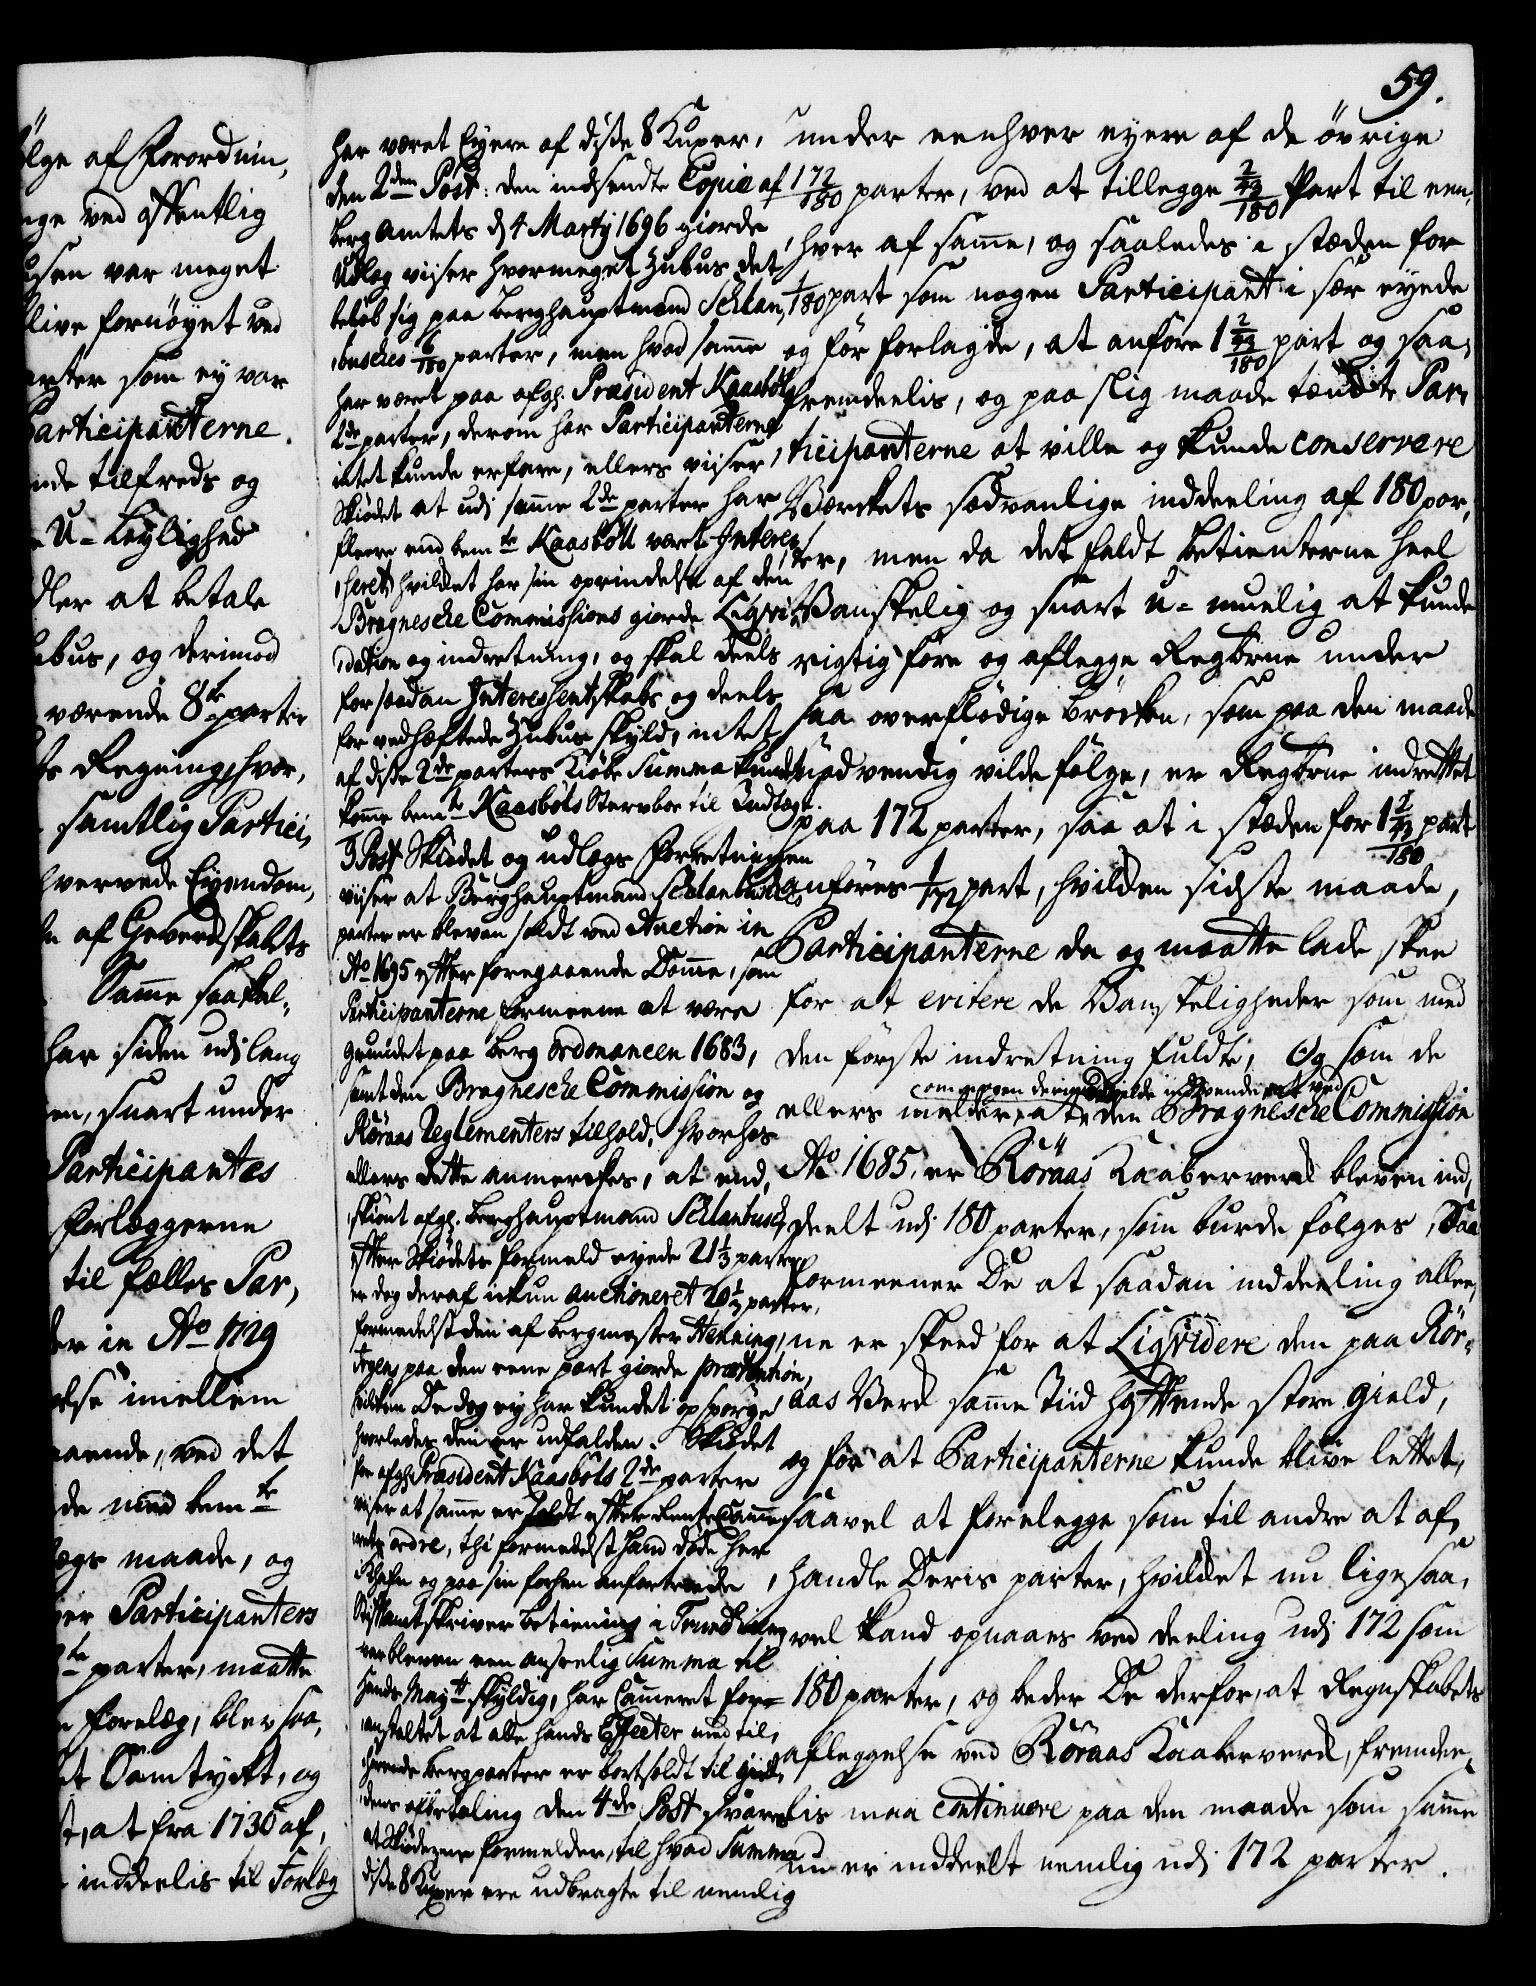 59.
ölge af Forordnin,
nge ved offentlig
usen var meget
live fornöyet ved
arter som ey var
Participanterne.
nde tilfreds og
U-Leylighed
dler at betale
ubus, og derimod
værende 8te parter
ts Regning, hvor,
samtlig Partici,
hvervede Eyendom,
af Gevercskabts
Samme saakal-
har siden udj lang
en, snart under
Participantes
Forlæggerne
til fælles Par,
der in Ao 1729
else imellem
aaende, ved det
de med bemte
lægs maade, og
Participanters
te parter, maatte
forelæg, blev saa,
et Samtyckt, og
t, at fra 1730 af,
inddeelis til Forlæg
har været Eyere af disse 8 Kuxer,
den 2den Post: den indsendte Copie af
Berg Amtets d 4 Martij 1696 giorde
Udlæg viiser hvormeget Zubus det
beløb sig paa Berghauptmand Schlan,
busches 6/180 parter, men hvad samme
har været paa afgl. Præsident Kaasböls
2de parter, derom har Participanterne
intet kunde erfare, ellers viiser
Skiödet at udj samme 2de parter har
fleere end bemte Kaasböll vært Interes,
seret, hvilket har sin oprindelse af den
Bragnesche Commissions giorde Liqvi,
dation og indretning, og skal deels
for saadan Interessentskabs og deels
for vedhæftede Zubus skyld, intet
af disse 2de parters Kiöbe Summa kunde
komme bemte Kaasböls Sterboe til Indtægt.
3 Post Skiödet og udlægs Forretningen
viiser at Berghauptmand Schlanbusches
parter er bleven soldt ved Auction in
Ao 1695 efter foregaaende Domme, som
Participanterne formeene at være
grundet paa Berg Ordonancen 1683,
samt den Bragnesche Commission og
Röraas Reglementers tilhold, hvorhos
ellers dette anmerckes, at end,
skiönt afgl. Berghauptmand Schlanbusch
efter Skiödets formeld eyede 21 1/3 parter
er dog deraf ickun auctioneret 20 1/3 parter,
formedelst den af Bergmester Henning
Irgens paa den eene part giorde prætention,
hvilken De dog ey har kundet opspørge
hvorledes den er udfalden. Skiödet
for afgl. Præsident Kaasböls 2de parter
viiser at samme er soldt efter Rente Cammer
rets ordre, thi formedelst hand döde her
i Kbhafn og paa sin forhen anfortroede
Stiftamtskriver Betiening i Trundhiem
var bleven een anseelig Summa til
Hands Maytt skyldig, har Cameret for-
anstaltet at alle hands Effecter med til,
hörende Bergparter er bortsoldt til Giel,
dens afbetaling den 4de Post svares
at Skiödezene formelder, til hvad Summa
disse 8 Kuxer ere udbragte til nemlig
under eenhver eyere af de övrige
172/180 parter, ved at tillegge 2/43/180 Part til een,
hver af samme, og saaledes i stæden for
1/180 part som nogen Participant i sær eyede
og för forlagde, at anföre 1 2/43/180 part og saa,
fremdeelis, og paa slig maade tænckte Par,
ticipanterne at ville og kunde conservere
Værckets sædvanlige inddeeling af 180 par,
ter, men da det faldt betienterne heel
Vanskelig og snart u-muelig at kunde
rigtig före og aflegge Regbrne under
saa overflödige brösken, som paa den maade
nödvendig vilde fölge, er Regbrne indrettet
paa 172 parter, saa at i stæden for 1 2/43/180 part
anföres 1/172 part, hvilcken sidste maade,
Participanterne da og maatte lade skee
for at evitere de Vanskeligheder som med
den förste indretning fuldte, Og som de
om nogen derimod vilde indvende at ved
ellers melder, at den Bragnesche Commission
Ao 1685. er Röraas Kaaberverck bleven ind,
deelt udj 180 parter, som burde fölges, Saa
formeener De at saadan inddeeling allee,
ne er skeed for at Liqvidere den paa Rör-
aas Verck samme Tiid hæftende store gield,
og for at Participanterne kunde blive lettet,
saavel at forelegge som til andre at af,
handle Deris parter, hvilcket nu ligesaa,
vel kand opnaaes ved deeling udj 172 som
180 parter, og beder De derfor, at Regnskabets
afleggelse ved Röraas Kaaberverck, fremdee,
lis maa continuere paa den maade som samme
nu er inddeelt nemlig udj 172 parter.